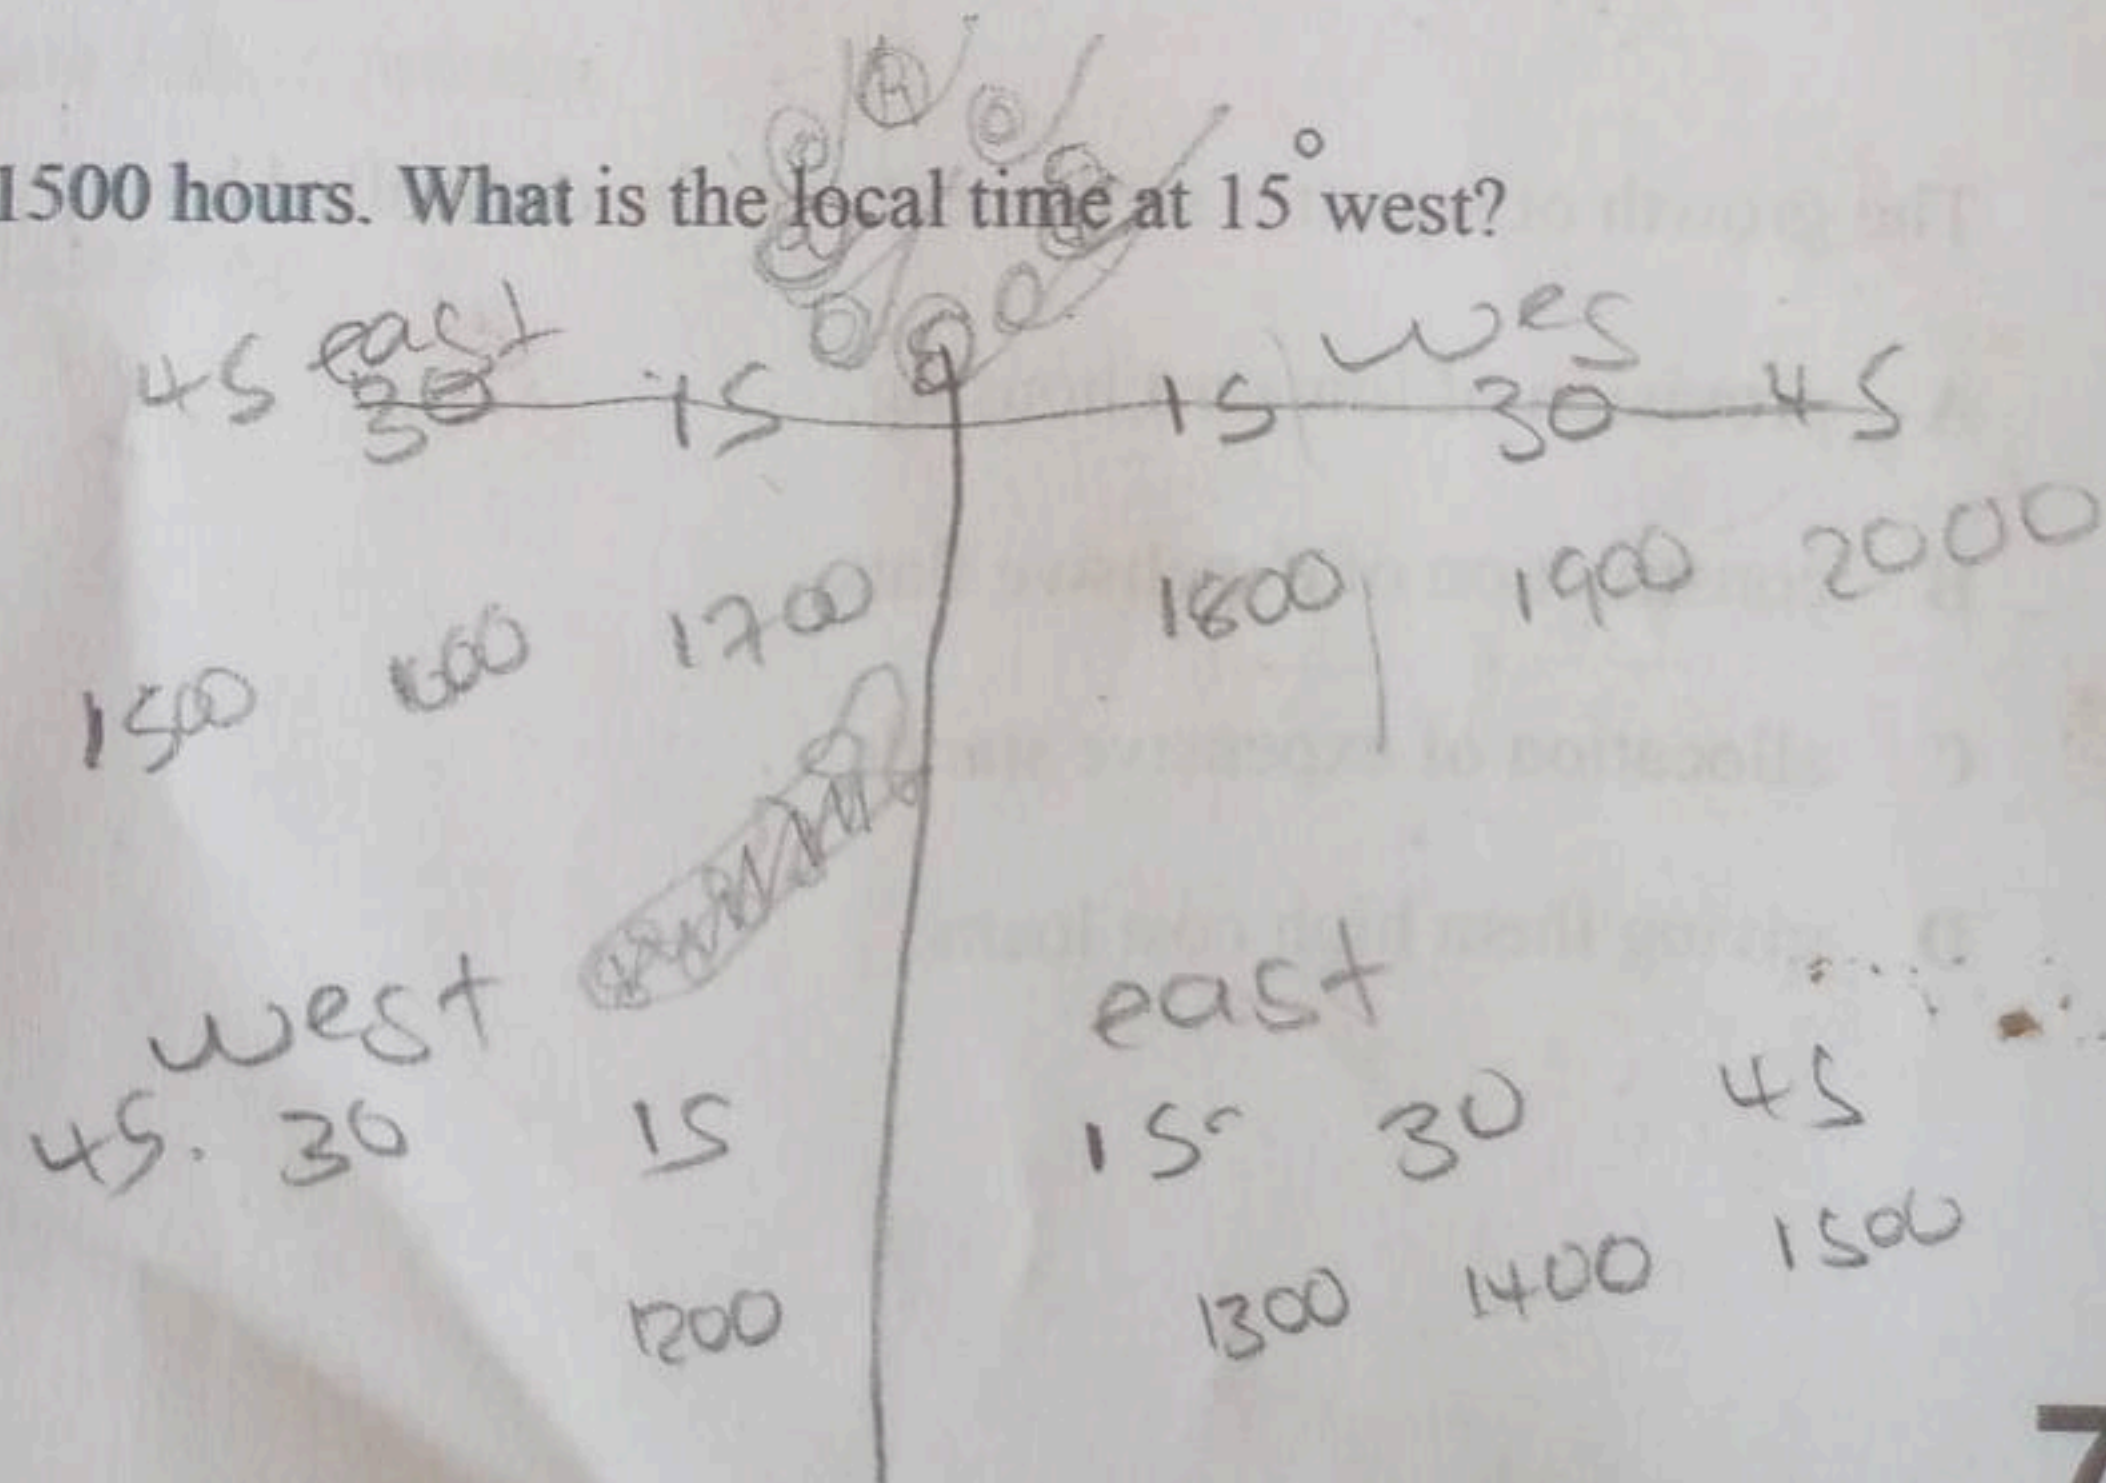 1500 hours. What is the local time at 15° west?
east wes
45 30 15 15 30 45
1500 1600 1700 1800 1900 2000
west east
45. 30 15 15 30 45
1200 1300 1400 1500
7